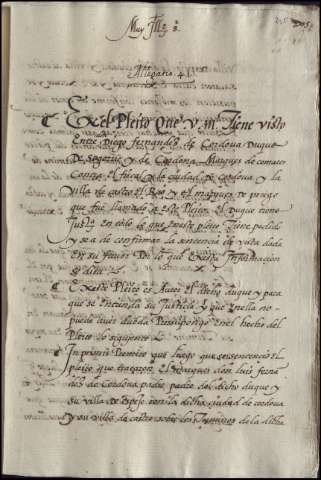 Muy Ill.es s.es
Allegatio. 41.
En el Pleito Que v. m. Tiene visto
Entre Diego fernandes de Cordova Duque
De Segorue y de Cardona Marques de comares
Contra el fiscal y la ciudad de cordova y la
Villa de castro el Rio y el marques de priego
que fue llamado a este Pleito. El Duque tiene
Justa. En esto q en este pleito Tiene pedido
y se a de confirmar la sentencia de vista dada
En su favor De lo que En esta Informacion
se dira
En este Pleito es Autor El dicho duque y para
que se Entienda su Justicia y que En ella no
puede auer duda Presuppongo En el hecho del
Pleito lo siguiente
In primis Presupo que luego que se sentencio El
pleito que trataron El Marques don luis ferna
des de Cordova padre del dicho duque y
su villa de Espejo con la dicha ciudad de cordova
y su villa de castro sobre los Terminos de la dicha